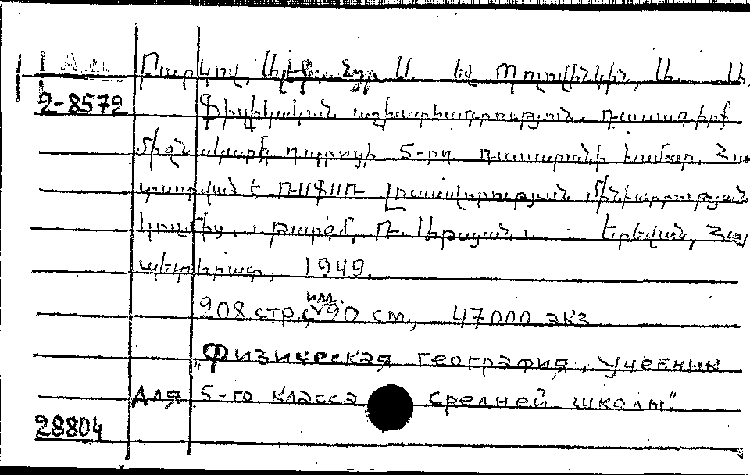 Ա. եվ Պոլովինկին, Ա. Ա.
2-8572 Ֆիզիկական աշխարհագրություն. դասագիրք
միջնակարգ դպրոցի 5-րդ դասարանի համար. Հաս
տատված է ՌՍՖՍՌ Լուսավորության մինիստրության
կողմից. թարգմ. Երեվան, Հայ
պետհրատ, 1949.
208 стр. илл. 20 см, 47000 экз
"Физическая география, учебник
для 5-го класса средней школы"
28804